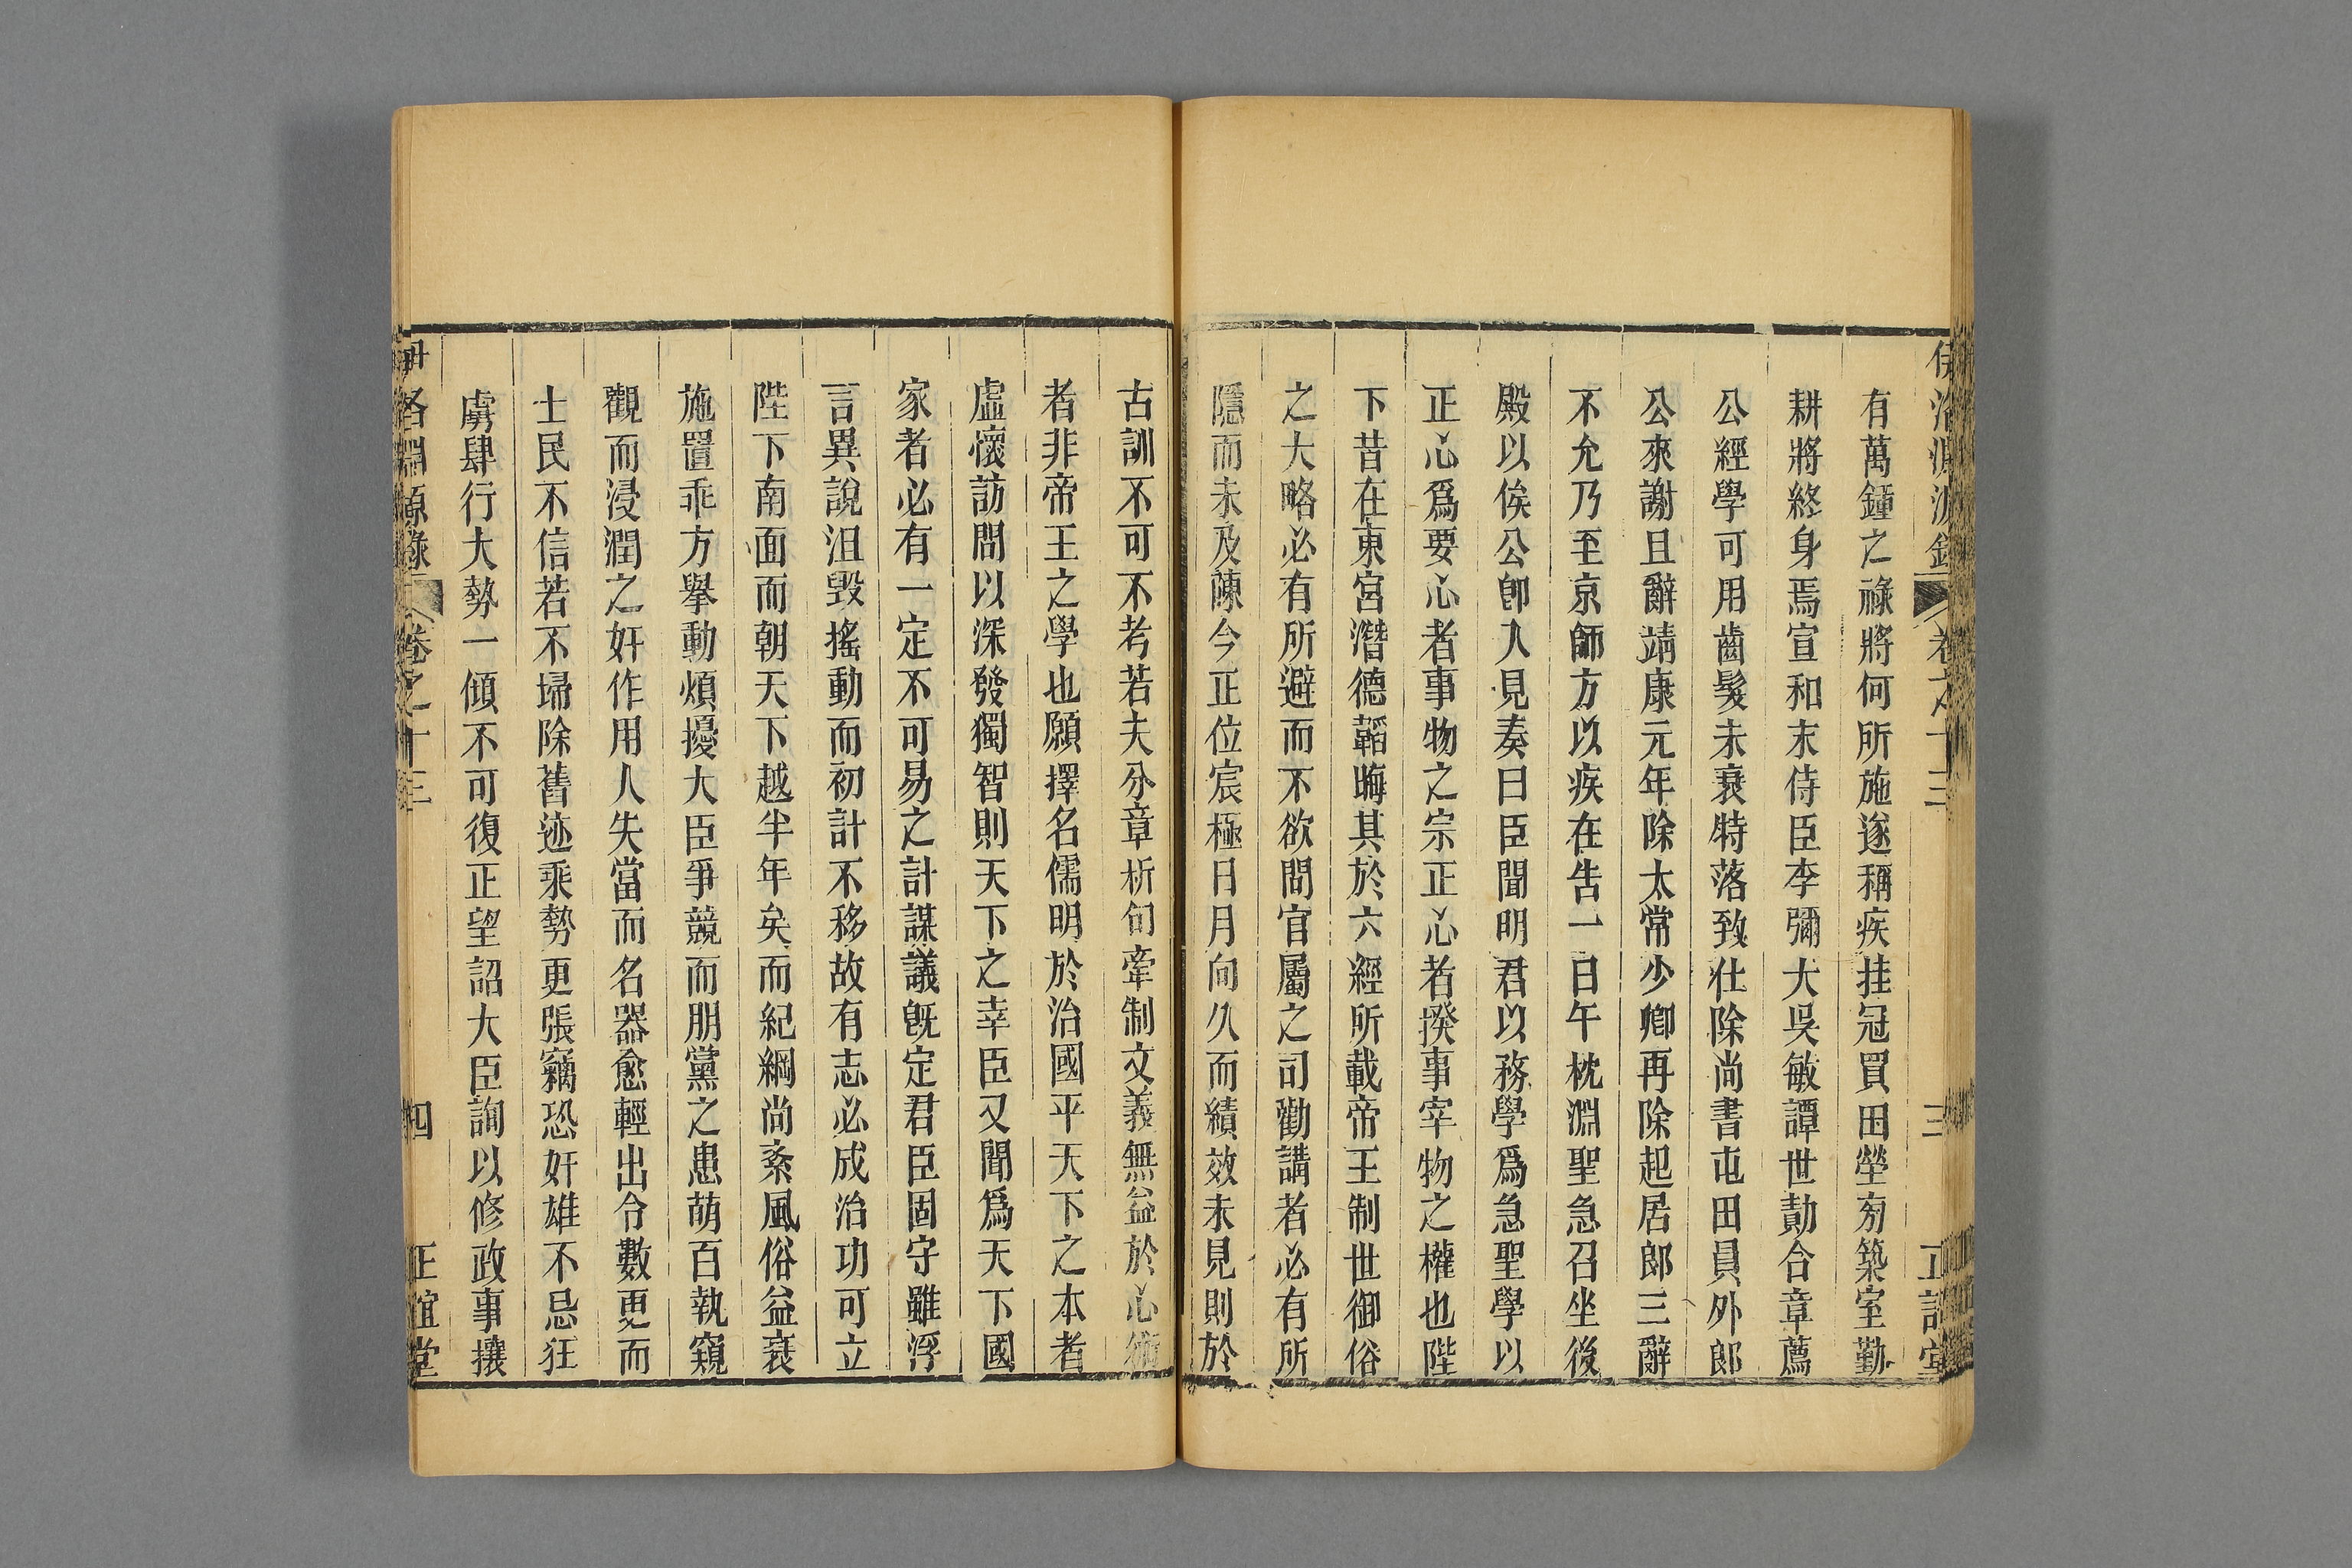 伊洛淵源錄 卷之十三 三 正誼堂
有萬鍾之祿將何所施遂稱疾挂冠買田塋旁築室勤
耕將終身焉宣和末侍臣李彌大吳敏譚世勣合章薦
公經學可用齒髮未衰特落致仕除尚書屯田員外郎
公來謝且辭靖康元年除太常少卿再除起居郎三辭
不允乃至京師方以疾在告一日午枕淵聖急召坐後
殿以俟公卽入見奏曰臣聞明君以務學爲急聖學以
正心爲要心者事物之宗正心者揆事宰物之權也陛
下昔在東宮潛德韜晦其於六經所載帝王制世御俗
之大略必有所避而不欲問官屬之司勸講者必有所
隱而未及陳今正位宸極日月向久而績效未見則於
古訓不可不考若夫分章析句牽制文義無益於心術
者非帝王之學也願擇名儒明於治國平天下之本者
虛懷訪問以深發獨智則天下之幸臣又聞爲天下國
家者必有一定不可易之計謀議旣定君臣固守雖浮
言異說沮毀搖動而初計不移故有志必成治功可立
陛下南面而朝天下越半年矣而紀綱尚紊風俗益衰
施置乖方舉動煩擾大臣爭競而朋黨之患萌百執窺
觀而浸潤之奸作用人失當而名器愈輕出令數更而
士民不信若不埽除舊迹乘勢更張竊恐奸雄不忌狂
虜肆行大勢一傾不可復正望詔大臣詢以修政事攘
伊洛淵源錄 卷之十三 四 正誼堂